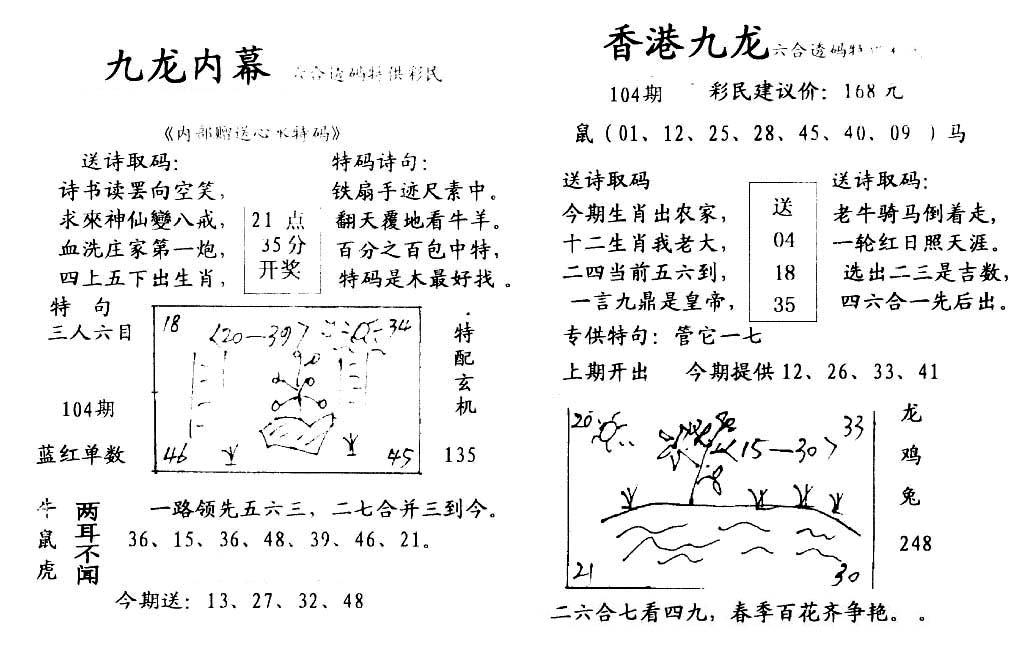 九龙内幕 六合透码特供彩民
《内部赠送心水特码》
送诗取码：
诗书读罢向空笑，
求來神仙變八戒，
血洗庄家第一炮，
四上五下出生肖，
21 点
35分
开奖
特码诗句：
铁扇手迹尺素中。
翻天覆地看牛羊。
百分之百包中特，
特码是木最好找 。
特 句
三人六目
104期
蓝红单数
18
〈20—39〉
34
46
45
特
配
玄
机
135
牛
鼠
虎
两
耳
不
闻
一路领先五六三，二七合并三到今。
36、15、36、48、39、46、21。
今期送：13、27、32、48
香港九龙 六合透码特
104期 彩民建议价：168 元
鼠（01、12、25、28、45、40、09 ）马
送诗取码
今期生肖出农家，
十二生肖我老大，
二四当前五六到，
一言九鼎是皇帝，
送
04
18
35
送诗取码：
老牛骑马倒着走，
一轮红日照天涯。
选出二三是吉数，
四六合一先后出。
专供特句：管它一七
上期开出 今期提供 12、26、33、41
20
33
〈15—30〉
21
30
龙
鸡
兔
248
二六合七看四九，春季百花齐争艳。 。